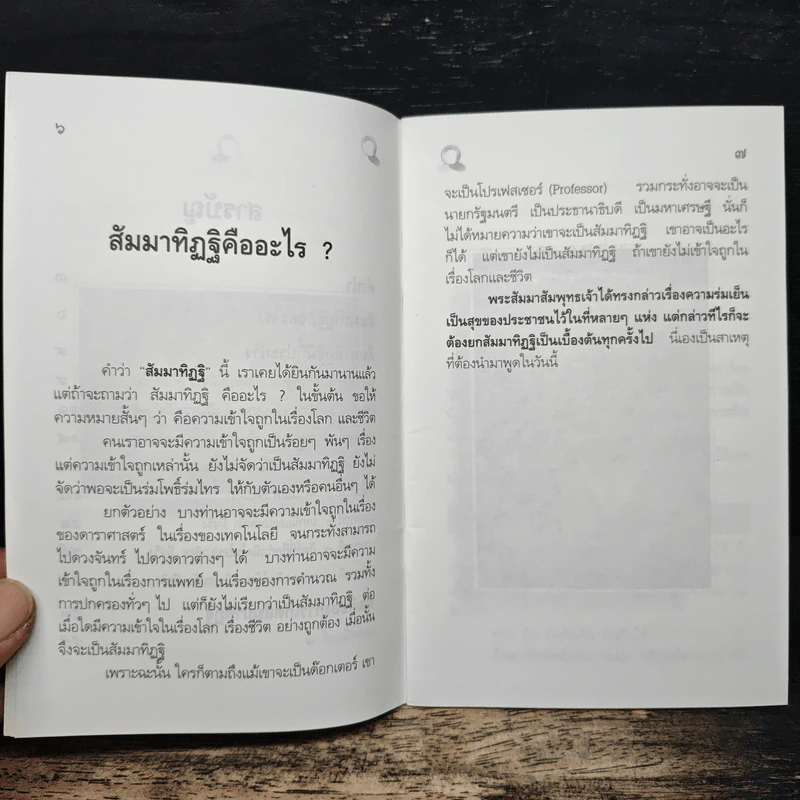 ๖
สัมมาทิฏฐิคืออะไร ?
คำว่า “สัมมาทิฏฐิ” นี้ เราเคยได้ยินกันมานานแล้ว
แต่ถ้าจะถามว่า สัมมาทิฏฐิ คืออะไร ? ในขั้นต้น ขอให้
ความหมายสั้นๆ ว่า คือความเข้าใจถูกในเรื่องโลก และชีวิต
คนเราอาจจะมีความเข้าใจถูกเป็นร้อยๆ พันๆ เรื่อง
แต่ความเข้าใจถูกเหล่านั้น ยังไม่จัดว่าเป็นสัมมาทิฏฐิ ยังไม่
จัดว่าพอจะเป็นร่มโพธิ์ร่มไทร ให้กับตัวเองหรือคนอื่นๆ ได้
ยกตัวอย่าง บางท่านอาจจะมีความเข้าใจถูกในเรื่อง
ของดาราศาสตร์ ในเรื่องของเทคโนโลยี จนกระทั่งสามารถ
ไปดวงจันทร์ ไปดวงดาวต่างๆ ได้ บางท่านอาจจะมีความ
เข้าใจถูกในเรื่องการแพทย์ ในเรื่องของการคำนวณ รวมทั้ง
การปกครองทั่วๆ ไป แต่ก็ยังไม่เรียกว่าเป็นสัมมาทิฏฐิ ต่อ
เมื่อใดมีความเข้าใจในเรื่องโลก เรื่องชีวิต อย่างถูกต้อง เมื่อนั้น
จึงจะเป็นสัมมาทิฏฐิ
เพราะฉะนั้น ใครก็ตามถึงแม้เขาจะเป็นด๊อกเตอร์ เขา
๗
จะเป็นโปรเฟสเซอร์ (Professor) รวมกระทั่งอาจจะเป็น
นายกรัฐมนตรี เป็นประธานาธิบดี เป็นมหาเศรษฐี นั่นก็
ไม่ได้หมายความว่าเขาจะเป็นสัมมาทิฏฐิ เขาอาจเป็นอะไร
ก็ได้ แต่เขายังไม่เป็นสัมมาทิฏฐิ ถ้าเขายังไม่เข้าใจถูกใน
เรื่องโลกและชีวิต
พระสัมมาสัมพุทธเจ้าได้ทรงกล่าวเรื่องความร่มเย็น
เป็นสุขของประชาชนไว้ในที่หลายๆ แห่ง แต่กล่าวทีไรก็จะ
ต้องยกสัมมาทิฏฐิเป็นเบื้องต้นทุกครั้งไป นี่เองเป็นสาเหตุ
ที่ต้องนำมาพูดในวันนี้